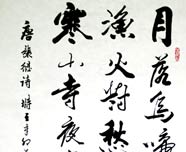 月落烏啼
漁火對愁
寒山寺夜
唐張繼詩 辛卯